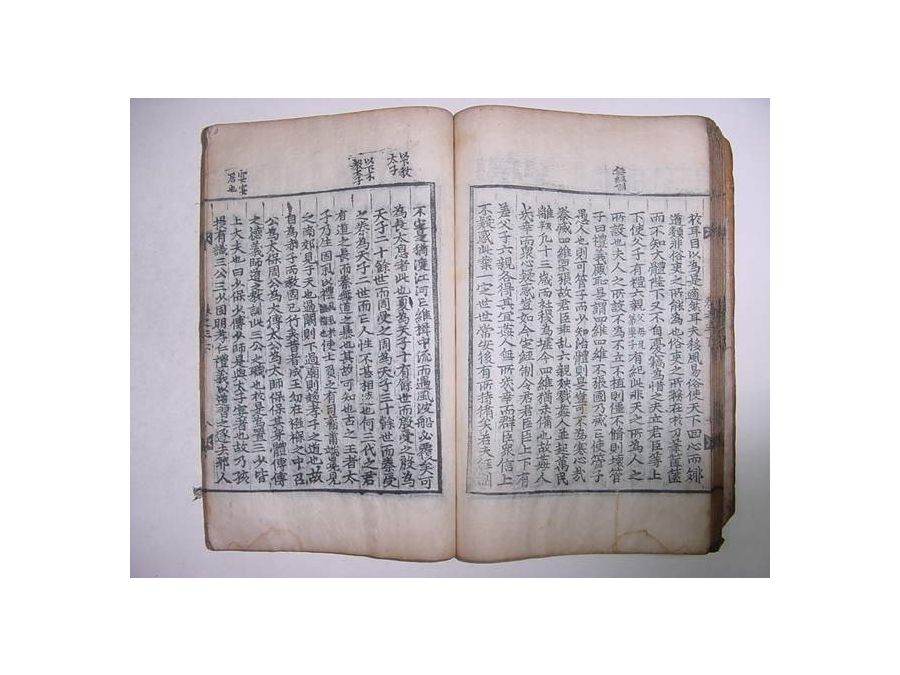 於耳目以為是適然耳夫移風易俗使天下回心而鄉
道類非俗吏之所能為也俗吏之所務在於刀筆筐篋
而不知大體陛下又不自憂竊為惜之夫立君臣等上
下使父子有禮六親有紀此非天之所為人之
所設也夫人之所設不為不立不植則僵不脩則壞管
子曰禮義廉恥是謂四維四維不張國乃滅亡使管子
愚人也則可管子而少知治體則是豈可不為寒心哉
秦滅四維不張故君臣乖乱六親殃戮姦人並起萬民
離叛凡十三歲而社稷為墟今四維猶未備也故姦人
幾幸而衆心疑惑豈如今定經制令君君臣臣上下有
差父子六親各得其宜姦人無所幾幸而羣臣衆信上
不疑惑此業一定世世常安後有所持循矣若夫經制
以教
太子
不定是猶渡江河亡維楫中流而遇風波船必覆矣可
為長太息者此也夏為天子十有餘世而殷受之殷為
天子二十餘世而周受之周為天子三十餘世而秦受
之秦為天子二世而亡人性不甚相遠也何三代之君
有道之長而秦無道之暴也其故可知也古之王者太
子乃生固舉以禮使士負之有司齊肅端冕見
之南郊見于天也過闕則下過廟則趨孝子之道也故
自為赤子而教固已行矣昔者成王幼在襁褓之中召
公為太保周公為太傅太公為太師保保其身體傅傅
之德義師道之教訓此三公之職也於是為置三少皆
上大夫也曰少保少傅少師是與太子宴者也故乃孩
提有識三公三少固明孝仁禮義以道習之逐去邪人